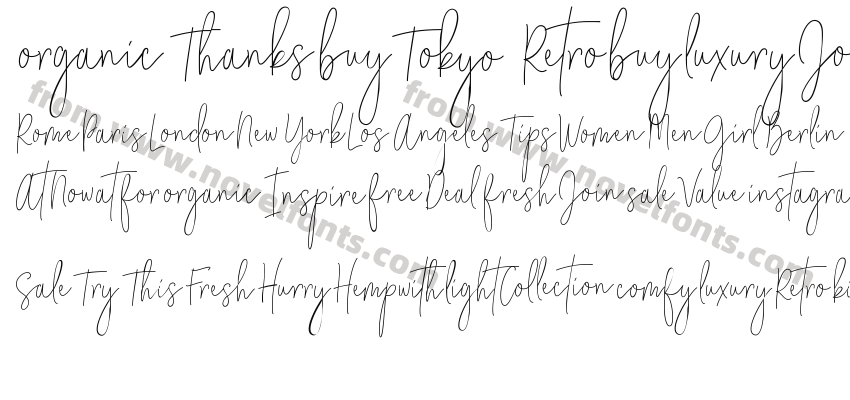 organic Thanks buy Tokyo Retro buy luxury Jo
Rome Paris London New York Los Angeles Tips Women Men Girl Berlin
At Now at for organic Inspire free Deal fresh Join sale Value instagra
Sale Try This Fresh Hurry Hemp with light Collection comfy luxury Retro ki
from www.novelfonts.com
from www.novelfonts.com